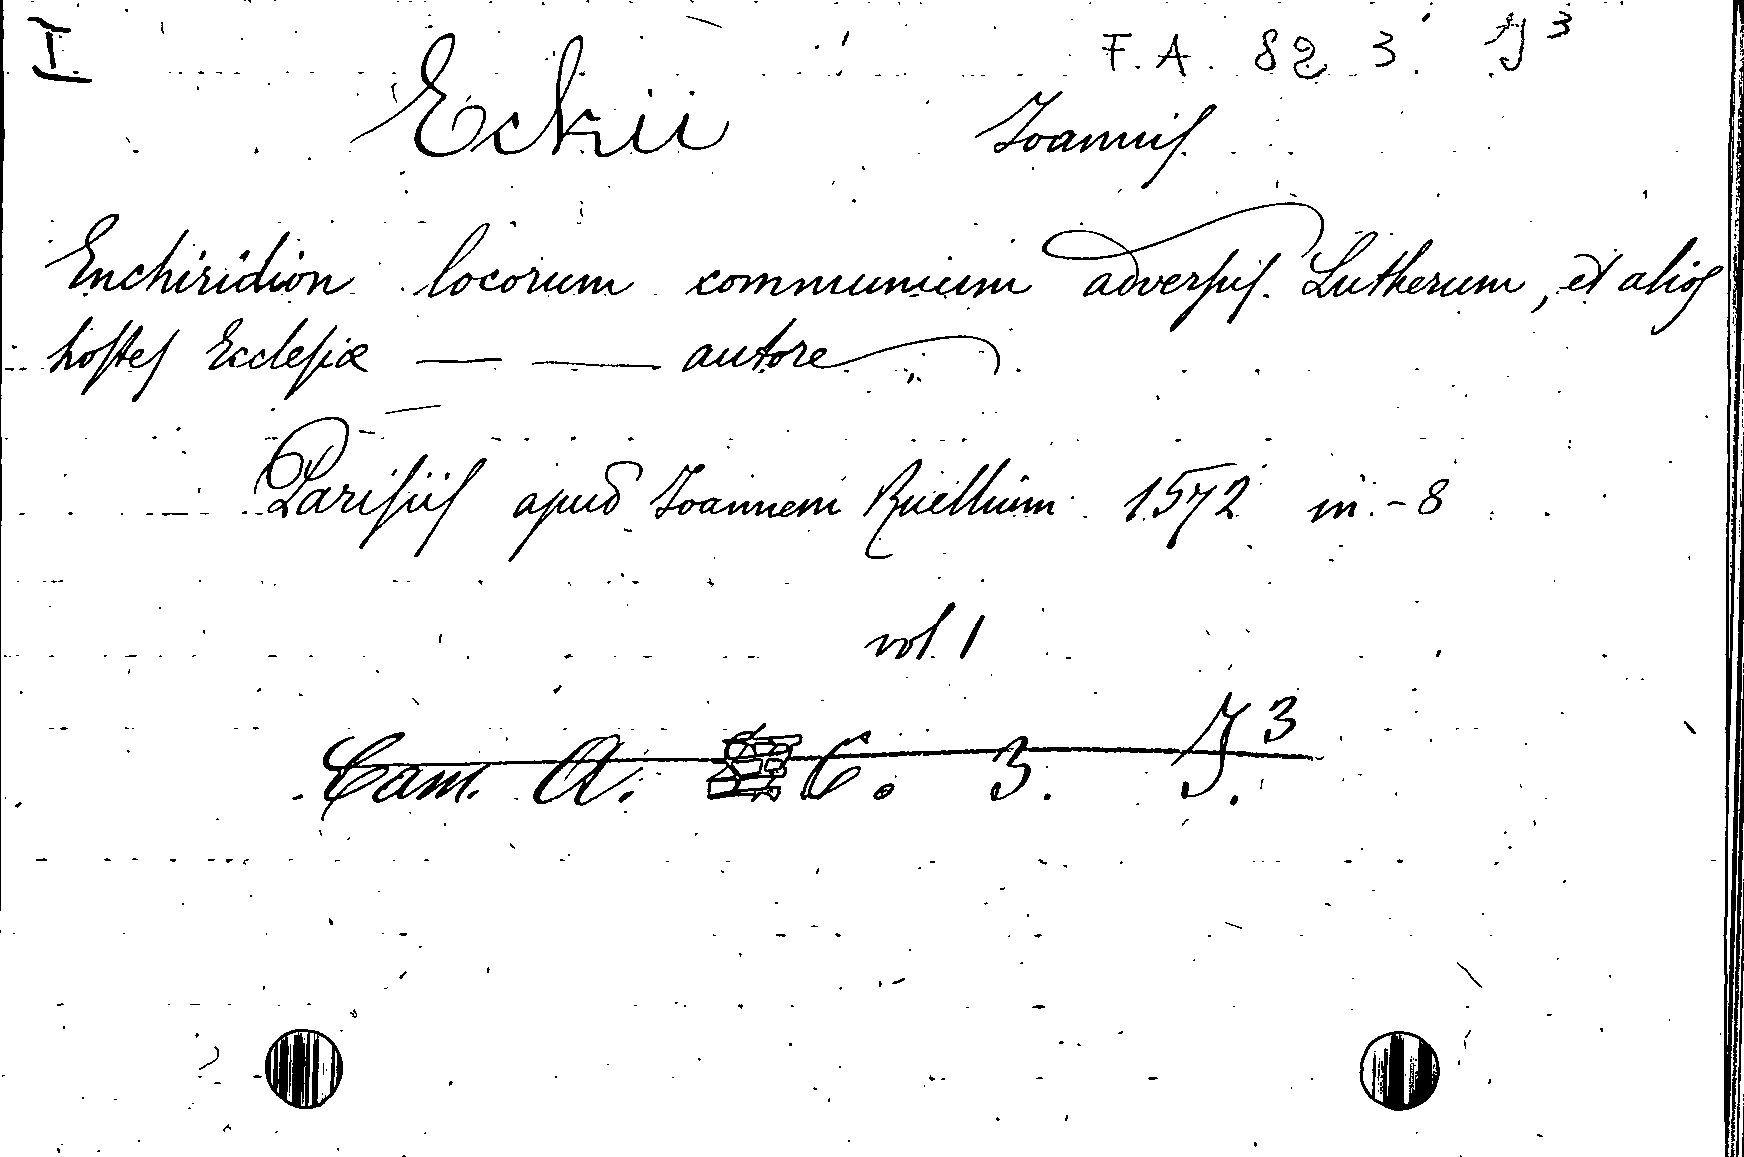 I. F. A. 82 3. J 3
Eckii Joannis
Enchiridion locorum communium adversus Lutherum, et alios
hostes Ecclesiæ — — autore
Parisiis apud Joannem Ruellium 1572 in-8
vol. 1
Cam. A. C. 3. J. 3